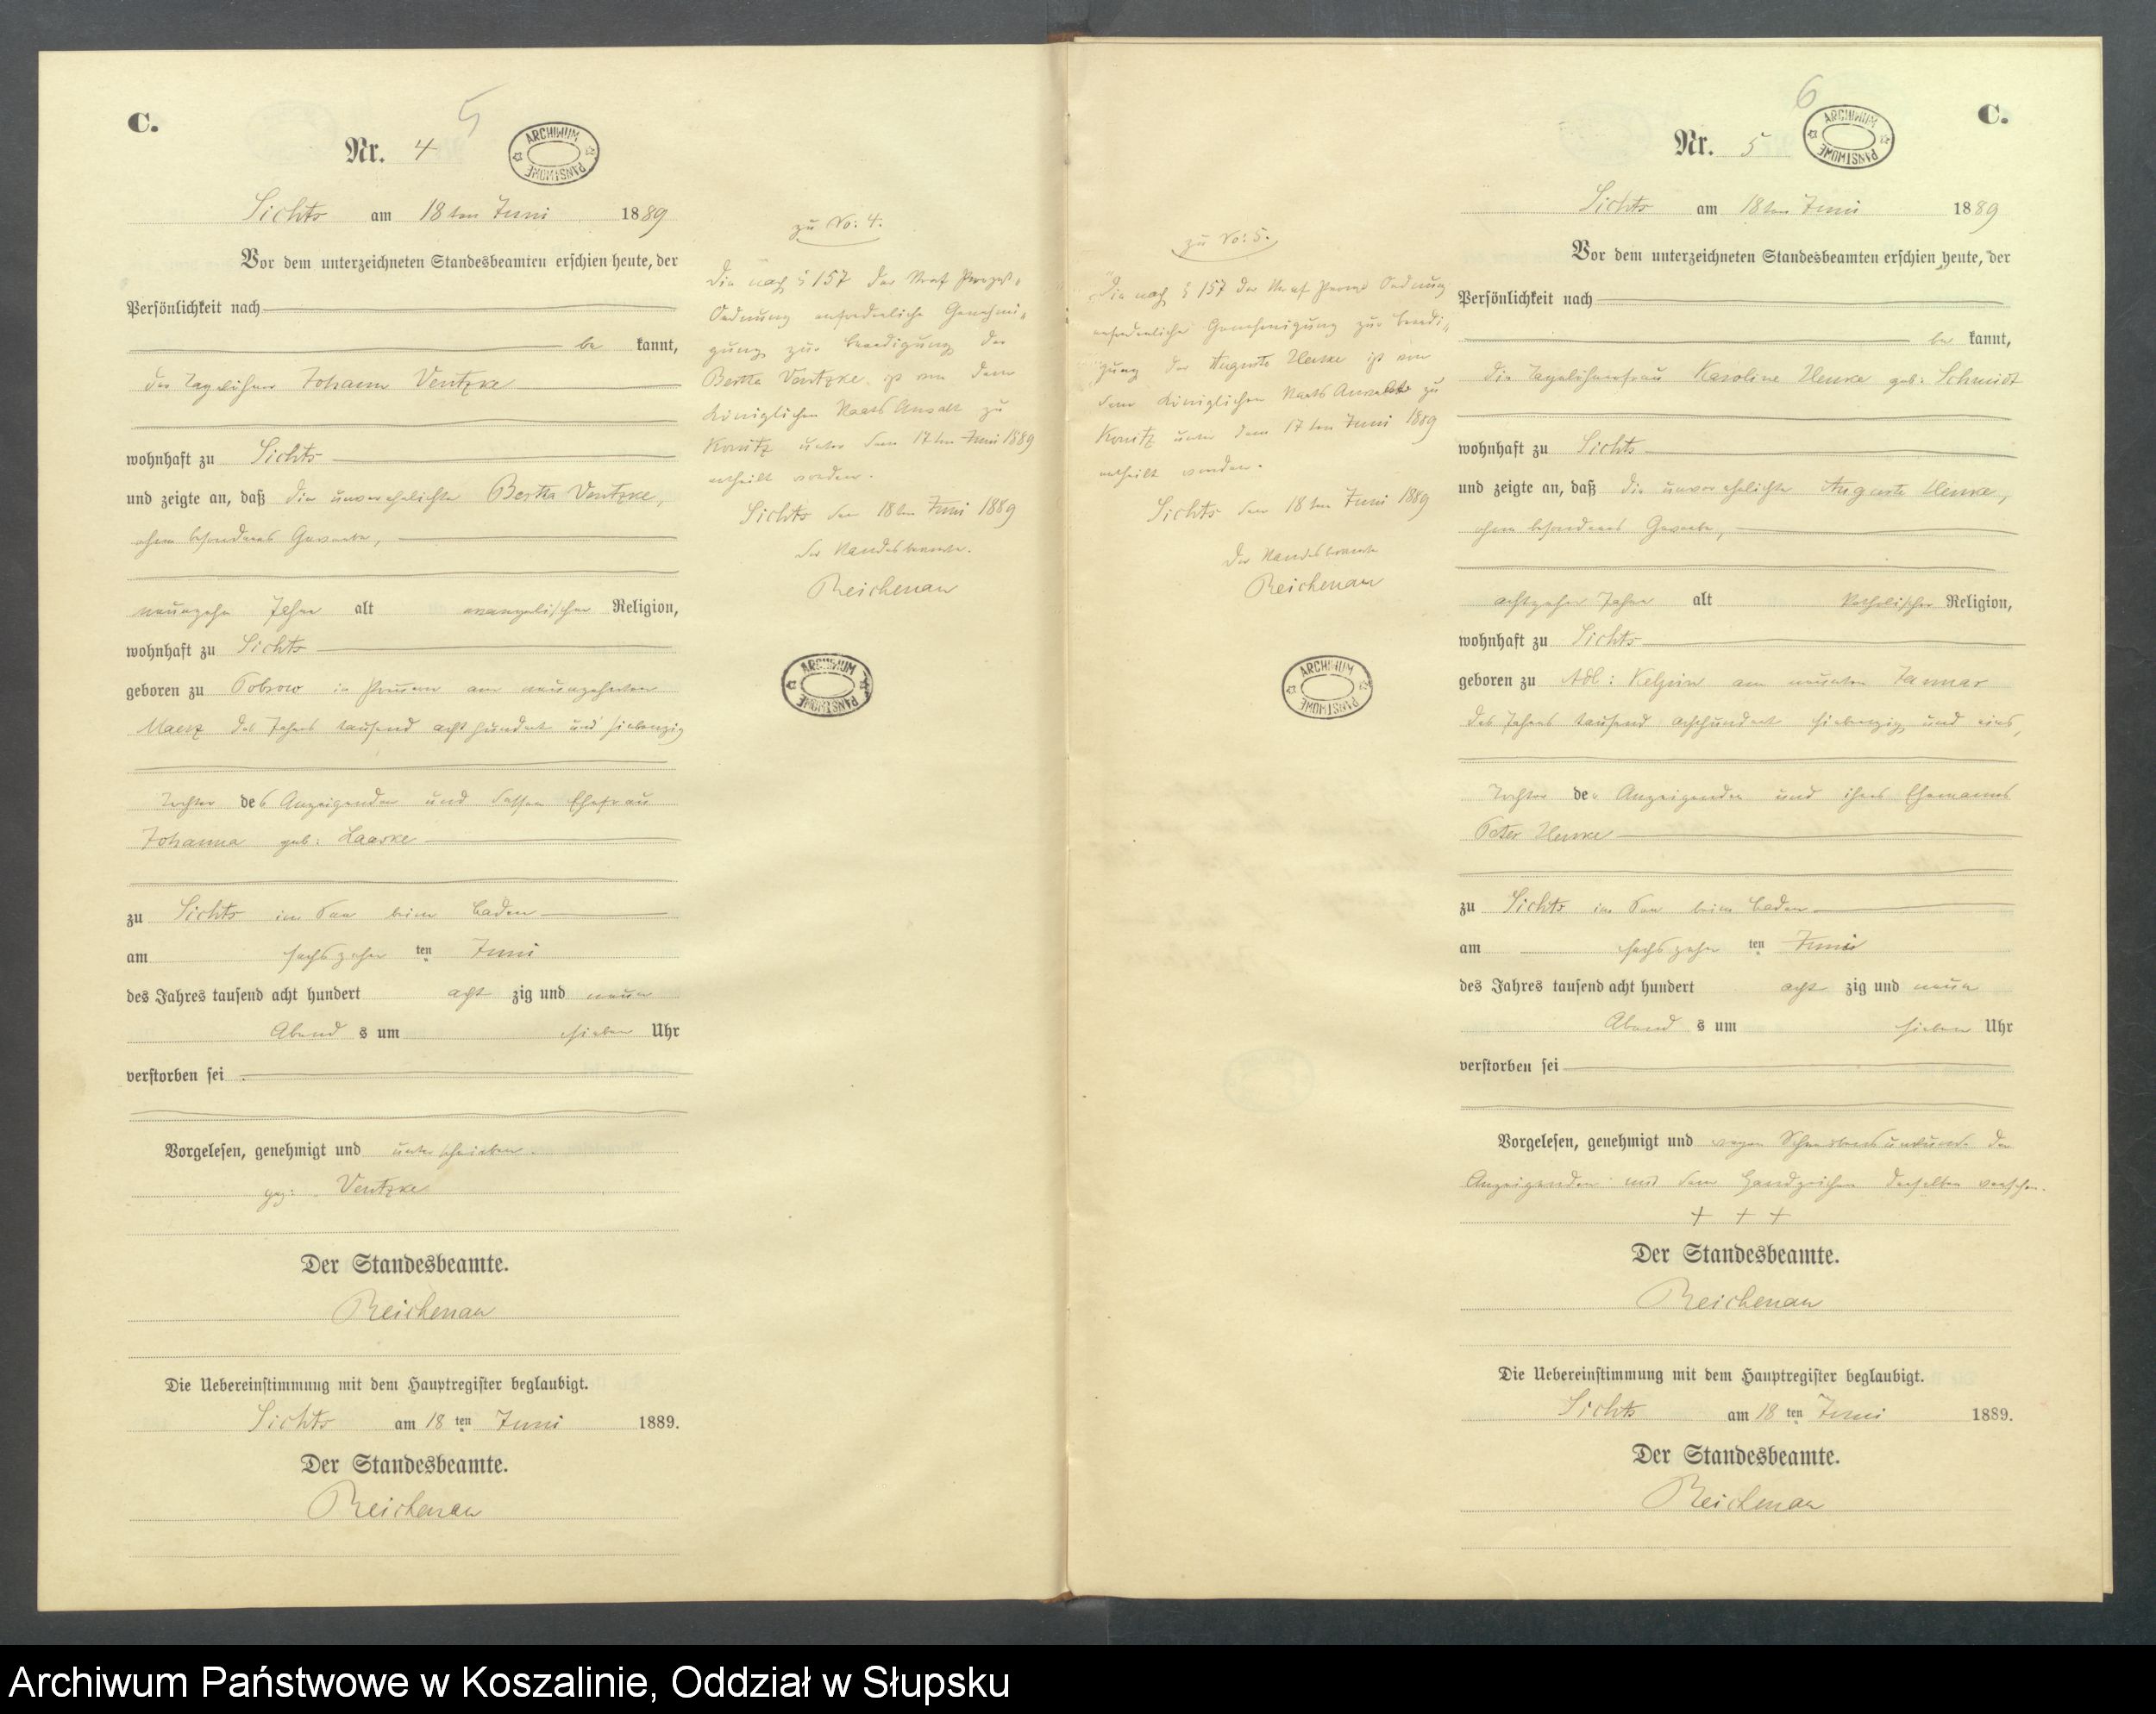 C.
5
Nr. 4
ARCHIWUM PAŃSTWOWE
Sichts am 18ten Juni 1889
Vor dem unterzeichneten Standesbeamten erschien heute, der
Persönlichkeit nach
be kannt,
der Tagelöhner Johann Ventzke
wohnhaft zu Sichts
und zeigte an, daß die unverehelichte Bertha Ventzke,
ohne besonderes Gewerbe,
neunzehn Jahre alt evangelischer Religion,
wohnhaft zu Sichts
geboren zu in am neunzehnten
Maerz des Jahres tausend acht hundert und siebenzig
Tochter des Anzeigenden und dessen Ehefrau
Johanna geb: Laaske
zu Sichts im See beim Baden
am sechszehn ten Juni
des Jahres tausend acht hundert acht zig und neun
Abend s um sieben Uhr
verstorben sei
Vorgelesen, genehmigt und unterschrieben.
gez: Ventzke
Der Standesbeamte.
Reichenau
Die Uebereinstimmung mit dem Hauptregister beglaubigt.
Sichts am 18 ten Juni 1889.
Der Standesbeamte.
Reichenau
zu No: 4.
Die nach § 157 der Straf Prozeß-
Ordnung erforderliche Genehmi-
gung zur Beerdigung der
Bertha Ventzke ist von dem
Königlichen Staats Anwalt zu
Konitz unter dem 17ten Juni 1889
ertheilt worden.
Sichts den 18ten Juni 1889
Der Standesbeamte.
Reichenau
ARCHIWUM PAŃSTWOWE
zu No: 5.
Die nach § 157 der Straf Prozeß Ordnung
erforderliche Genehmigung zur Beerdi-
gung der Auguste Henke ist von
dem Königlichen Staats Anwalt zu
Konitz unter dem 17ten Juni 1889
ertheilt worden.
Sichts den 18ten Juni 1889
Der Standesbeamte
Reichenau
ARCHIWUM PAŃSTWOWE
6
C.
Nr. 5
ARCHIWUM PAŃSTWOWE
Sichts am 18ten Juni 1889
Vor dem unterzeichneten Standesbeamten erschien heute, der
Persönlichkeit nach
be kannt,
die Tagelöhnerfrau Karoline Henke geb: Schmidt
wohnhaft zu Sichts
und zeigte an, daß die unverehelichte Auguste Henke,
ohne besonderes Gewerbe,
achtzehn Jahre alt katholischer Religion,
wohnhaft zu Sichts
geboren zu Adl: Kelpin am neunten Januar
des Jahres tausend achthundert siebenzig und eins,
Tochter der Anzeigenden und ihres Ehemanns
Peter Henke
zu Sichts im See beim Baden
am sechszehn ten Juni
des Jahres tausend acht hundert acht zig und neun
Abend s um sieben Uhr
verstorben sei
Vorgelesen, genehmigt und wegen Schreibensunkunde der
Anzeigenden mit dem Handzeichen derselben versehen.
+ + +
Der Standesbeamte.
Reichenau
Die Uebereinstimmung mit dem Hauptregister beglaubigt.
Sichts am 18 ten Juni 1889.
Der Standesbeamte.
Reichenau
Archiwum Państwowe w Koszalinie, Oddział w Słupsku